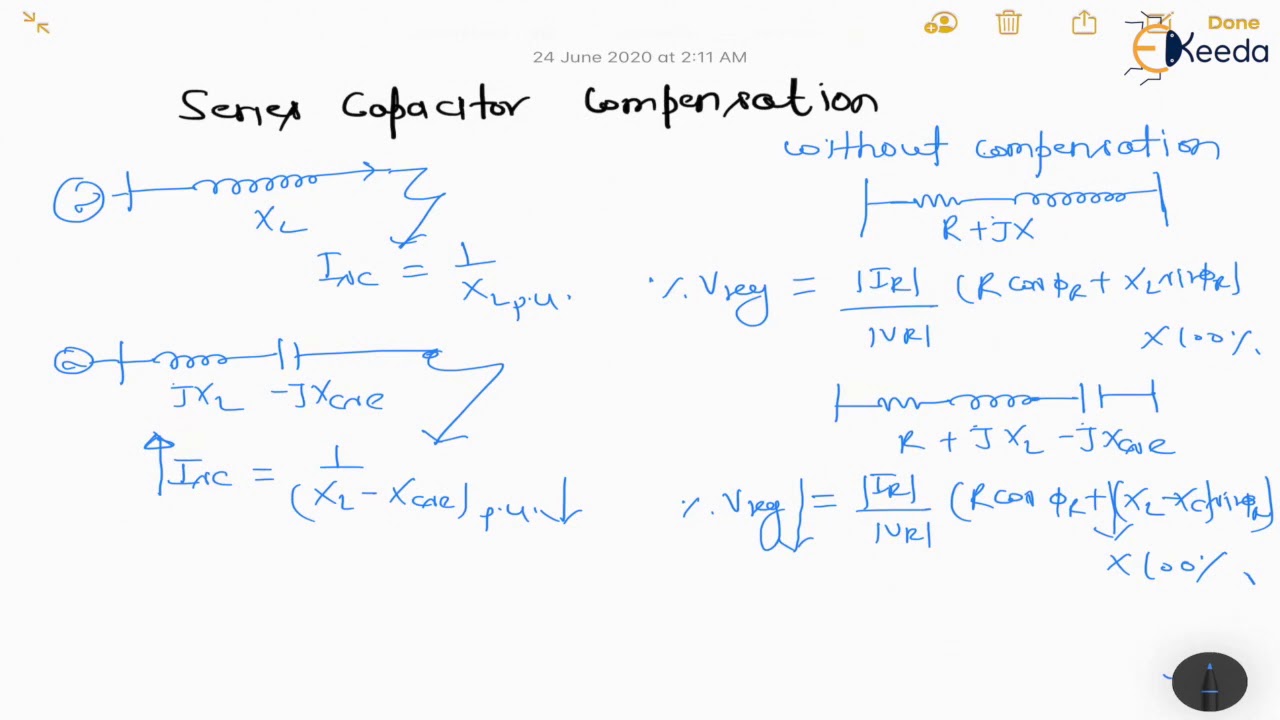 Done
EKeeda
24 June 2020 at 2:11 AM
Series Capacitor Compensation
without compensation
X_L
R + JX
I_SC = 1 / X_L p.u.
% Vreg = |I_R| / |V_R| (R cos φ_R + X_L sin φ_R) X 100%
JX_L -JX_Cse
R + JX_L - JX_Cse
↑ I_SC = 1 / (X_L - X_Cse) p.u. ↓
% Vreg ↓ = |I_R| / |V_R| (R cos φ_R + (X_L - X_C) sin φ_R) X 100%